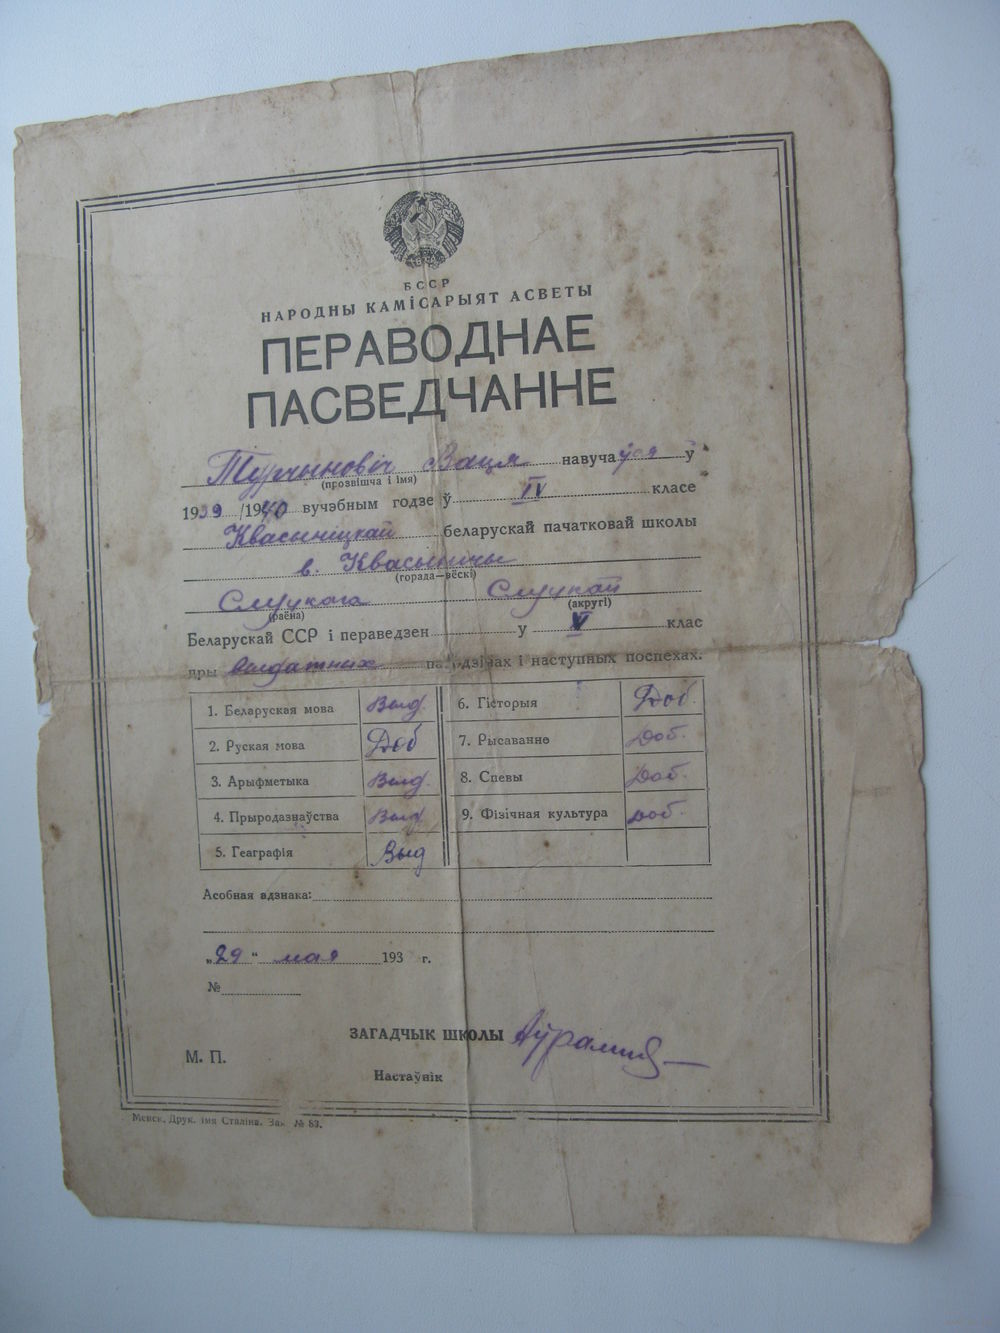 БССР
НАРОДНЫ КАМІСАРЫЯТ АСВЕТЫ
ПЕРАВОДНАЕ
ПАСВЕДЧАННЕ
Турчыновіч Вацл навучаўся ў
(прозвішча і імя)
1939/1940 вучэбным годзе ў IV класе
Квасыніцкай беларускай пачатковай школы
в. Квасынічы
(горада—вёскі)
Слуцкага Слуцкай
(раёна) (акругі)
Беларускай ССР і пераведзен у V клас
пры выдатных паводзінах і наступных поспехах:
1. Беларуская мова Выд. 6. Гісторыя Доб.
2. Руская мова Доб 7. Рысаванне Доб.
3. Арыфметыка Выд. 8. Спевы Доб.
4. Прыродазнаўства Выд 9. Фізічная культура Доб.
5. Геаграфія Выд
Асобная адзнака:
„29“ мая 193 г.
№
ЗАГАДЧЫК ШКОЛЫ
М. П.
Настаўнік
Менск. Друк. імя Сталіна. Зак. № 83.